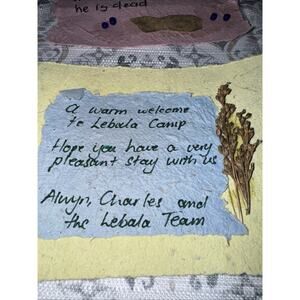 he is dead
A warm welcome
to Lebala Camp
Hope you have a very
pleasant stay with us
Alwyn, Charles and
the Lebala Team